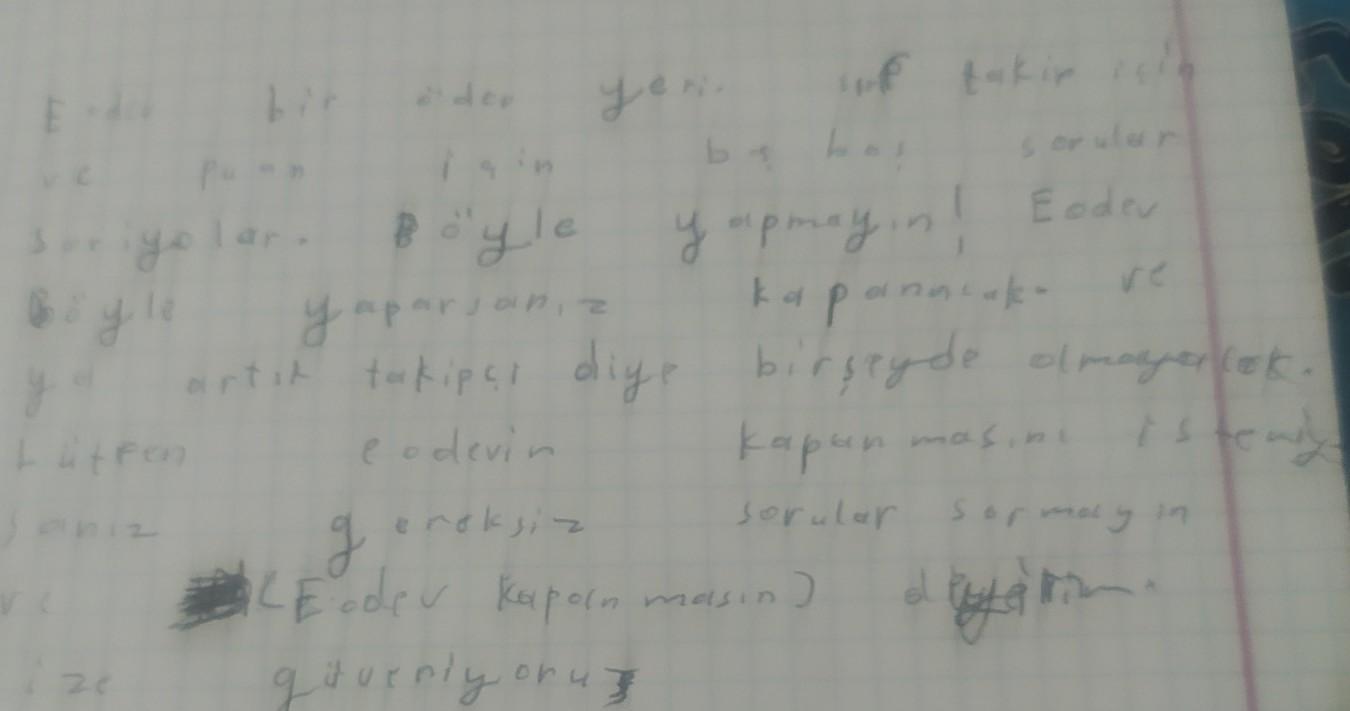 bir ödev yeri. sırf takip için
ve puan için boş sorular
soriyolar. Böyle yapmayın! Eodev
böyle yaparsanız kapanacak. ve
ya artık takipçi diye birşeyde olmayacak.
Lütfen eodevin kapanmasını isteniy
sanız gereksiz sorular sormayın
ve (Eodev kapanmasın)
ize güveniyoruz